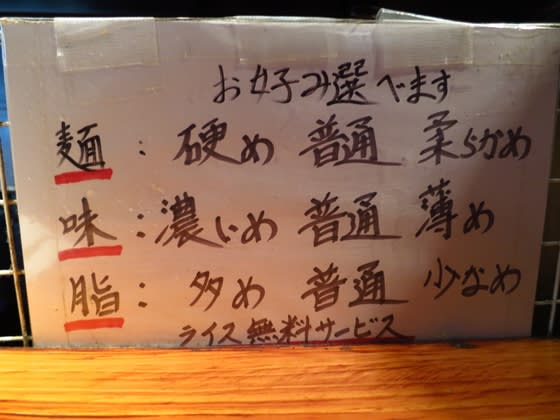 お好み選べます
麺：硬め 普通 柔らかめ
味：濃いめ 普通 薄め
脂：多め 普通 少なめ
ライス無料サービス